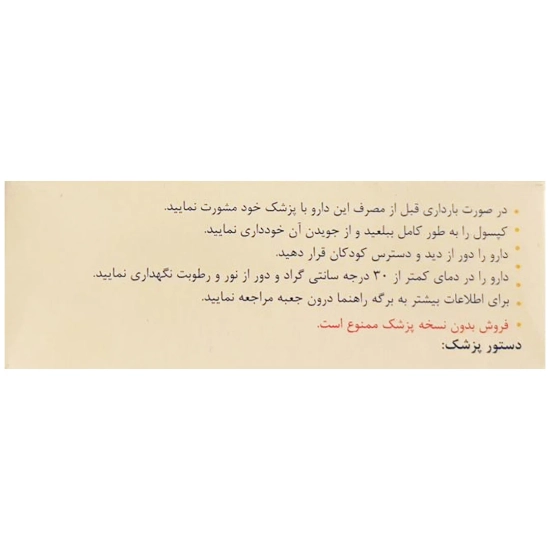 • در صورت بارداری قبل از مصرف این دارو با پزشک خود مشورت نمایید.
• کپسول را به طور کامل ببلعید و از جویدن آن خودداری نمایید.
• دارو را دور از دید و دسترس کودکان قرار دهید.
• دارو را در دمای کمتر از ۳۰ درجه سانتی گراد و دور از نور و رطوبت نگهداری نمایید.
• برای اطلاعات بیشتر به برگه راهنما درون جعبه مراجعه نمایید.
• فروش بدون نسخه پزشک ممنوع است.
دستور پزشک: